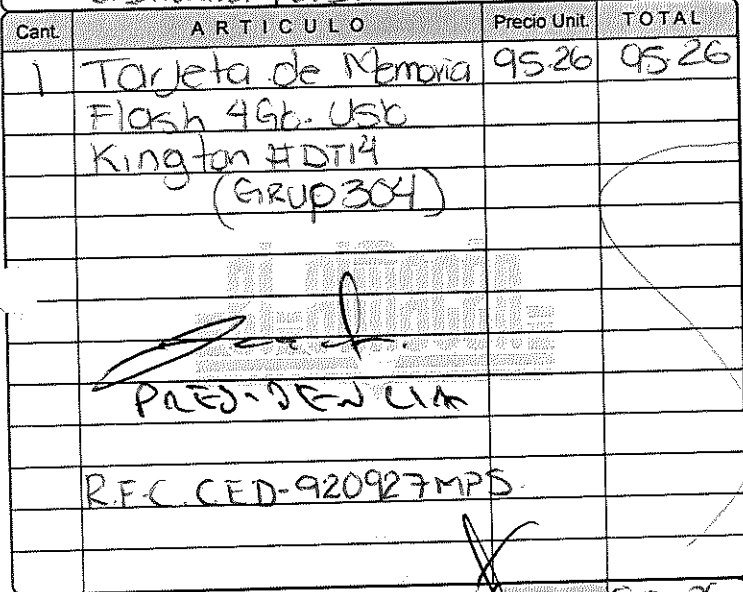 Cant. ARTICULO Precio Unit. TOTAL
1 Tarjeta de Memoria 95.26 95.26
Flash 4Gb. Usb
Kington #DTI4
(GRUP304)
PRESIDENCIA
R.F.C. CED-920927MPS.